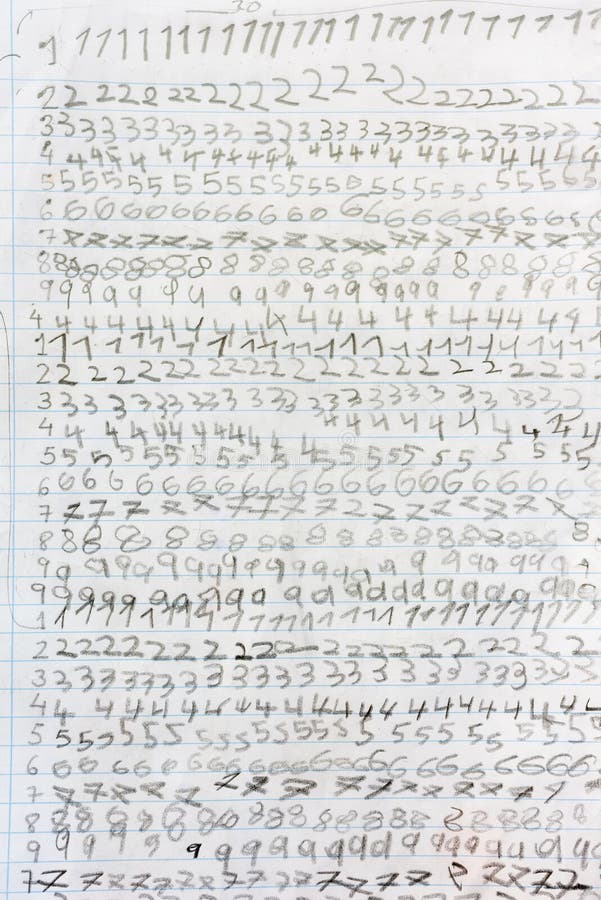 30
1 1 1 1 1 1 1 1 1 1 1 1 1 1 1 1 1 1 1 1 1 1 1 1
2 2 2 2 2 2 2 2 2 2 2 2 2 2 2 2 2 2 2 2 2 2 2 2 2
3 3 3 3 3 3 3 3 3 3 3 3 3 3 3 3 3 3 3 3 3 3 3 3 3 3 3
4 4 4 4 4 4 4 4 4 4 4 4 4 4 4 4 4 4 4 4 4 4 4 4 4
5 5 5 5 5 5 5 5 5 5 5 5 5 5 5 5 5 5 5 5 5 5 5 5 5 5 5
6 6 6 6 6 6 6 6 6 6 6 6 6 6 6 6 6 6 6 6 6 6 6 6
7 7 7 7 7 7 7 7 7 7 7 7 7 7 7 7 7 7 7 7 7 7 7
8 8 8 8 8 8 8 8 8 8 8 8 8 8 8 8 8 8 8 8 8 8
9 9 9 9 9 9 9 9 9 9 9 9 9 9 9 9 9 9 9 9 9 9
4 4 4 4 4 4 4 4 4 4 4 4 4 4 4 4 4 4 4 4 4 9 4
1 1 1 1 1 1 1 1 1 1 1 1 1 1 1 1 1 1 1 1 1 1 1 1
2 2 2 2 2 2 2 2 2 2 2 2 2 2 2 2 2 2 2 2 2 2 2
3 3 3 3 3 3 3 3 3 3 3 3 3 3 3 3 3 3 3 3 3 3 3 3
4 4 4 4 4 4 4 4 4 4 4 4 4 4 4 4 4 4 4 4 4 4
5 5 5 5 5 5 5 5 5 5 5 5 5 5 5 5 5 5 5 5 5 5
6 6 6 6 6 6 6 6 6 6 6 6 6 6 6 6 6 6 6 6 6 6 6
7 7 7 7 7 7 7 7 7 7 7 7 2 7 7 7 7 7 7 7
8 8 8 8 8 8 8 8 8 8 8 8 8 8 8 8 8 8 8 8 8 8
9 9 9 9 9 9 9 9 9 9 9 9 9 9 9 9 9 9 9 9 9 9
9 9 9 9 9 9 9 9 9 9 9 9 9 9 9 9 9 9 9 9 9 9 9
1 1 1 1 1 1 1 1 1 1 1 1 1 1 1 1 1 1 1 1 1 1 1 1 1
2 2 2 2 2 2 2 2 2 2 2 2 2 2 2 2 2 2 2 2 2 2 2
3 3 3 3 3 3 3 3 3 3 3 3 3 3 3 3 3 3 3 3 3 3 3 3
4 4 4 4 4 4 4 4 4 4 4 4 4 4 4 4 4 4 4 4 4 4 4
5 5 5 5 5 5 5 5 5 5 5 5 5 5 5 5 5 5 5 5 5 5 5
6 6 6 6 6 6 6 6 6 6 6 6 6 6 6 6 6 6 6 6 6 6
7 7 7 7 7 7 7 7 7 7 7 7 7 7 7 7 7 7 7
8 8 8 8 8 8 8 8 8 8 8 8 8 8 8 8 8 8 8 8 8 8
9 9 9 9 9 9 9 9 9 9 9 9 9 9 9 9 9 9 9 9 9
7 7 7 7 7 7 7 7 7 7 7 7 7 7 7 7 7 7 7